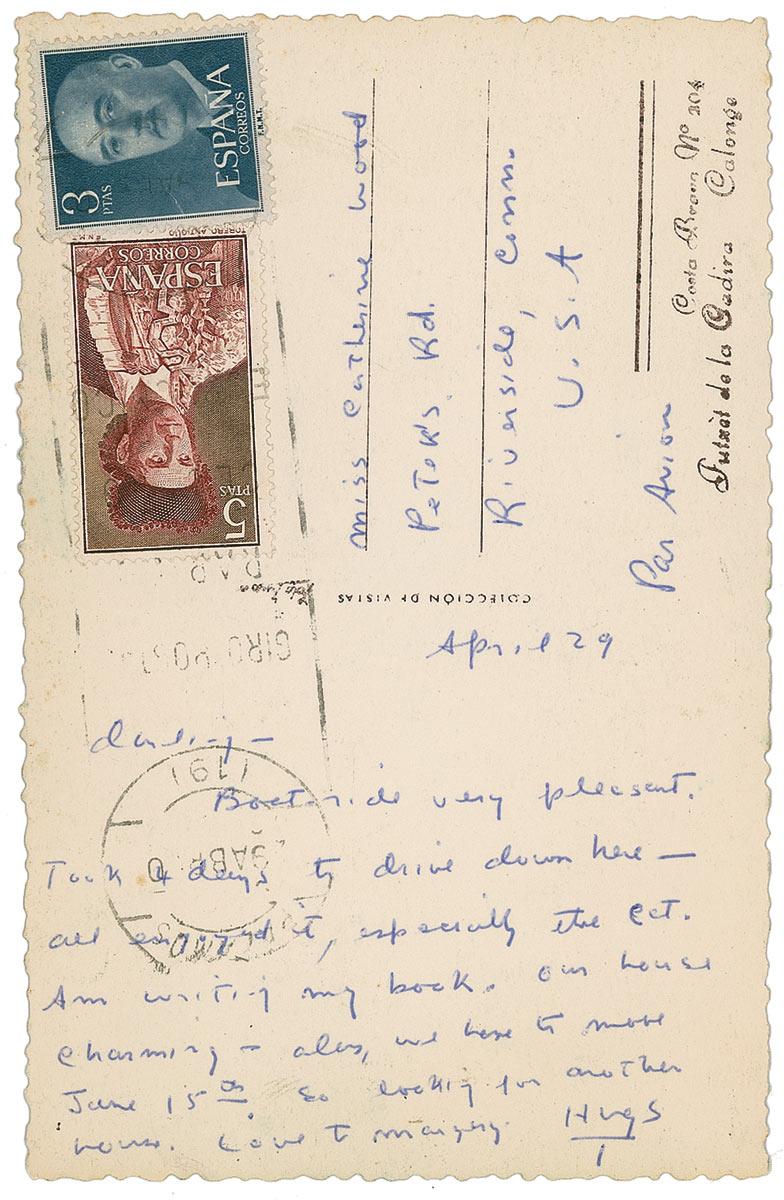 3
PTAS
ESPAÑA
CORREOS
F.N.M.T.
TORERO ANTIGUO
ESPAÑA
CORREOS
5
PTAS
GIRO POSTAL
COLECCIÓN DE VISTAS
Costa Brava Nº 204
de la Cadira Calonge
Miss Catherine Wood
Peter's Rd.
Riverside, Conn.
U.S.A
Par Avion
April 29
Darling—
Boat-ride very pleasant.
Took 4 days to drive down here —
all enjoyed it, especially the cat.
Am writing my book. Our house
charming — alas, we have to move
June 15th. So looking for another
house. Love to Margery. Hugs
T